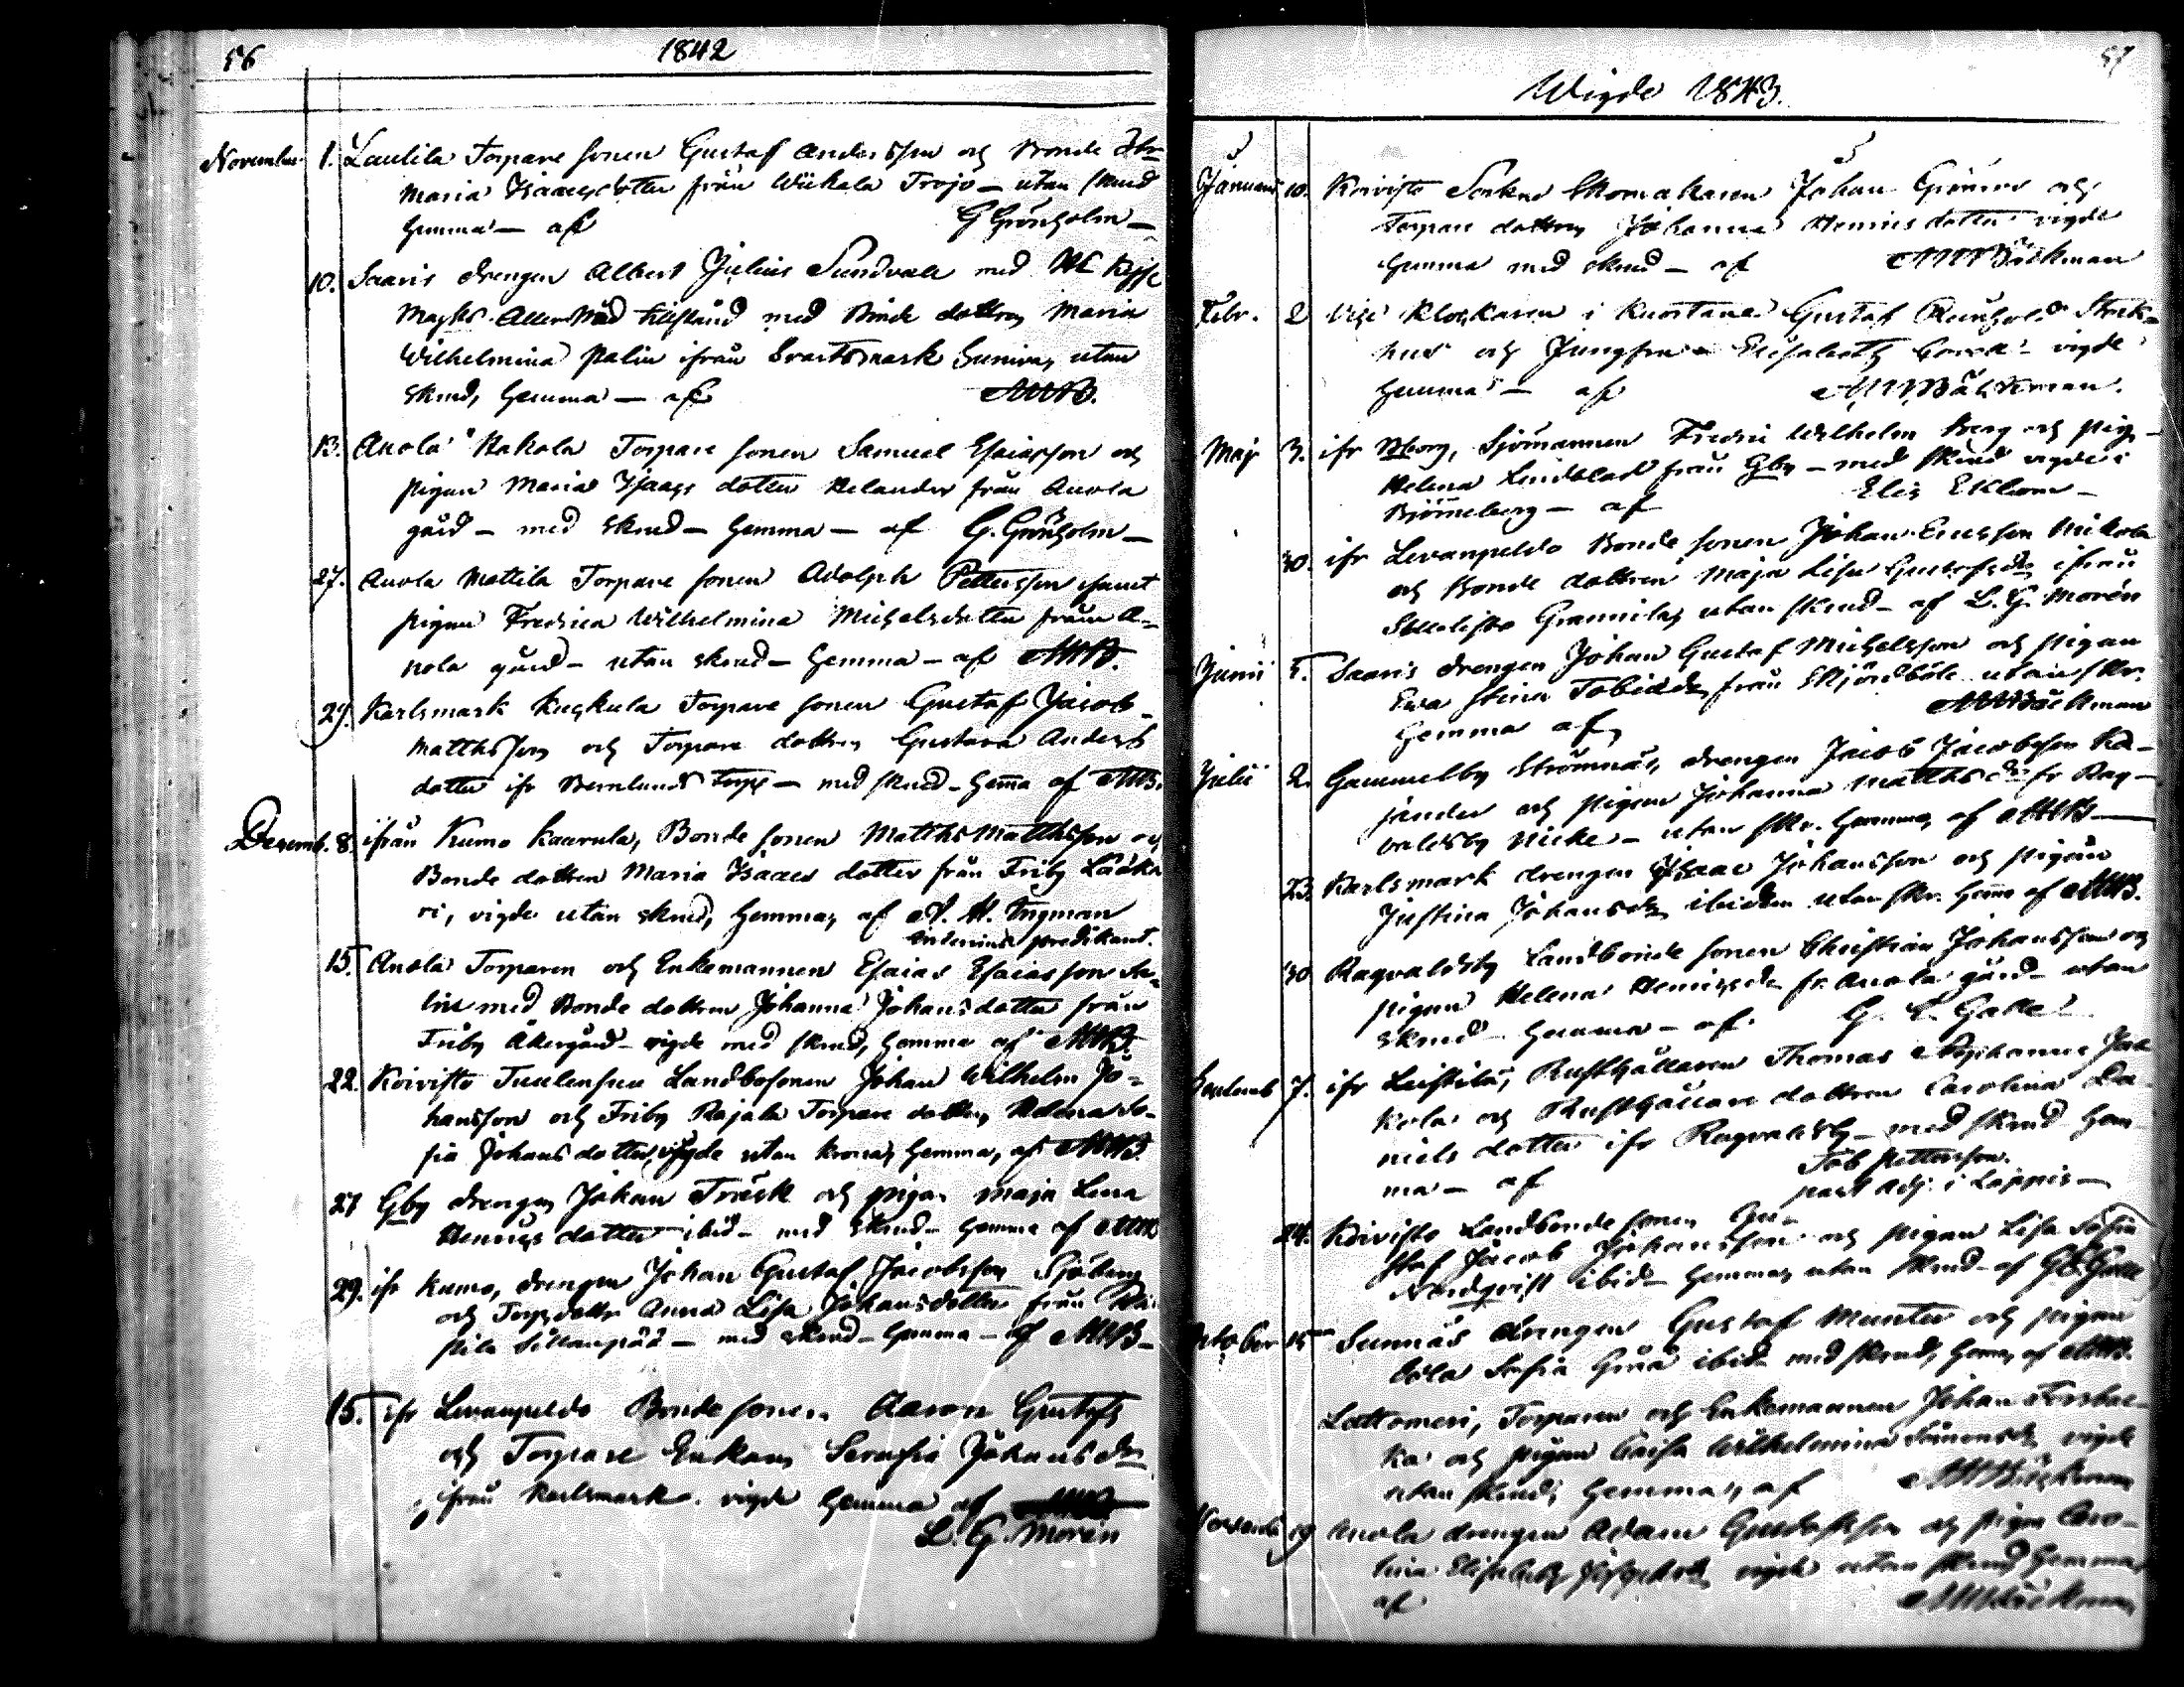 56
1842
November 1. Laulila Torpare sonen Gustaf Andersson och Bonde dtr
Maria Isaacsdotter från Wiikala Trojo – utan skrud
hemma – af G Grönholm –
10. Saaris drengen Albert Julius Sundvall med
Majts tillstånd med Bonde dottren Maria
Wilhelmina Palin ifrån Svartsmark Suniva, utan
skrud, hemma – af MWB.
13. Anola Hakola Torpare sonen Samuel Esaiasson och
pigan Maria Isaacs dotter Helander från Anola
gård – med skrud – hemma – af G. Grönholm –
27. Anola Mattila Torpare sonen Adolph Pettersson samt
pigan Fredrica Wilhelmina Michelsdotter från A-
nola gård – utan skrud – hemma – af MWB.
29. Karlsmark Kuckula Torpare sonen Gustaf Jacob
Matthsson och Torpare dottren Gustava Anders
dotter ifr Bernlunds Torp – med skrud – hema af MWB.
Decemb. 8. ifrån Kumo Kaarula, Bonde sonen Matths Matthsson och
Bonde dottren Maria Isaacs dotter från Friby Lååka
ri, vigde utan skrud, hemma, af A. H. Ingman
predikant.
15. Anola Torparen och Enkemannen Esaias Esaiasson Sa-
lin med Bonde dottren Johanna Johansdotter från
Friby Åkergård – vigde med skrud, hemma af MWB.
22. Koivisto Tuulensuu Landbosonen Johan Wilhelm Jo-
hansson och Friby Rajala Torpare dottren Helena So-
fia Johans dotter, vigde utan krona, hemma, af MWB.
27 Gby drengen Johan Träsk och pigan Maja Lena
Henrics dotter ibid – med skrud – hemma af MWB
29. ifr Kumo, drengen Johan Gustaf Jacobsson Sjöberg
och Torp dottr Anna Lisa Johansdotter från Ra-
pila Sillanpää – med skrud – hemma – af MWB –
15. ifr Levanpeldo Bonde sonen Aaron Gustafs
och Torpare Enkan Serafia Johansdr
ifrån Karlsmark. vigde hemma af
L. G. Morén
57
Wigde 1843.
Januarii 10. Koivisto Sockne Skomakaren Johan Grönroos och
Torpare dottren Johanna Henrics dotter vigde
hemma med skrud – af MWBäckman
Febr. 2 Vice Klockaren i Kuortane Gustaf Reinhold Stock-
hus och Jungfru Elisabeth vigde
hemma – af MWBäckman.
Maj 3. ifr Bborg, Sjömannen Fredric Wilhelm Berg och pig.
Helena Lindblad från Gby – med skrud vigde i
Björneborg – af Elis Ekbom –
30. ifr Levanpeldo Bonde sonen Johan Ericsson Mikola
och Bonde dottren Maja Lisa Gustafsdr ifrån
Sonnila, utan skrud – af L. G. Morén
Junii 5. Saaris drengen Johan Gustaf Michelsson och pigan
Ewa Stina Tobiadr från Skjördböle utan skr.
hemma af MWBäckman
Julii 2. Gammelby Strömnäs, drengen Jacob Jacobsson Ka-
jander och pigan Johanna Matths dr fr Rag-
valdsby Nicke – utan skr. hemma, af MWB –
23. Karlsmark drengen Isaac Johansson och pigan
Justina Johansdr ibidem utan skr. hema af MWB.
30 Ragvaldsby Landbonde sonen Christian Johansson och
pigan Helena Henricsdr fr. Anola gård – utan
skrud – hemma – af. G. E. Galle
Septemb 7. ifr Leistilä, Rusthållaren Thomas
Kerla och Rusthållare dottren Carolina Da-
niels dotter ifr Ragvaldsby – med skrud – hem
ma – af Job Pettersson.
past adj. i Lappis –
24. Koivisto Landbonde sonen Gu-
staf Jacob Johansson och pigan Lisa Sofia
Nordqvist ibid – hemma, utan skrud – af GE Galle
October 15 Sunnäs drengen Gustaf Munter och pigan
Sofia Grää ibidr med skrud, hema, af MWB.
Lattomeri, Torparen och Enkemannen Johan Forsbac-
ka och pigan Caisa Wilhelmina Simonsdr, vigde
utan skrud, hemma, af MWBäckman
Novemb 19 Anola drengen Adam Gustafsson och pigan Caro-
lina Elisabeth Josephsdr vigde utan skrud hemma,
af MWBäckman